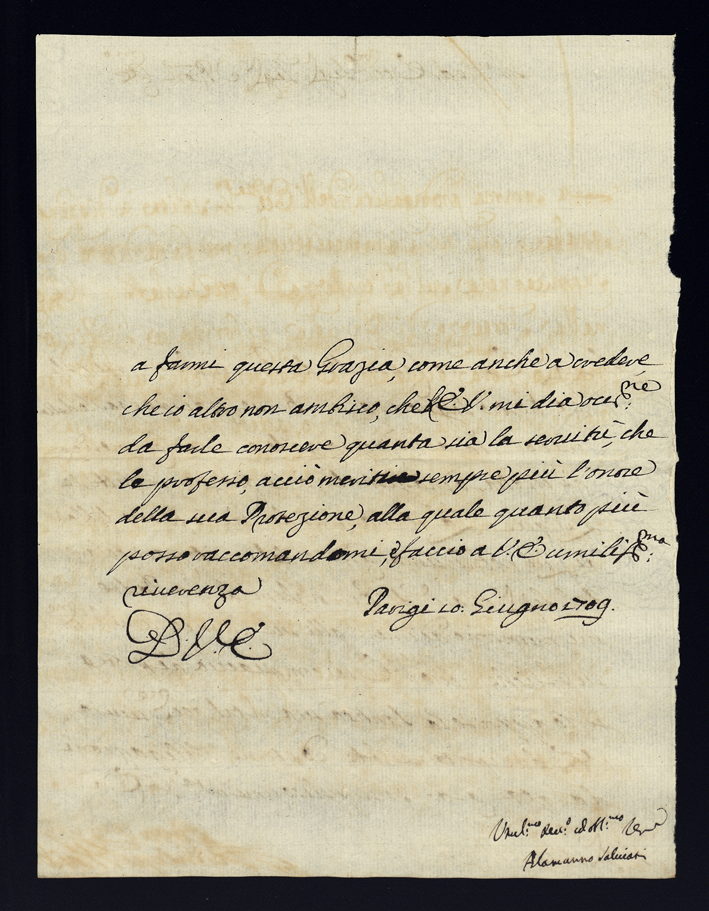 a farmi questa Grazia, come anche a credere
che io altro non ambisco, che V. E. mi dia occ.ne
da farle conoscere quanta sia la servitù, che
le professo, acciò meriti sempre più l'onore
della sua Protezione, alla quale quanto più
posso raccomandomi, e faccio a V. E. umiliss.ma
riverenza
Parigi 10. Giugno 1709.
D. V. E.
Umil.mo dev.o ed obl.mo Ser.e
Alamanno Salviati